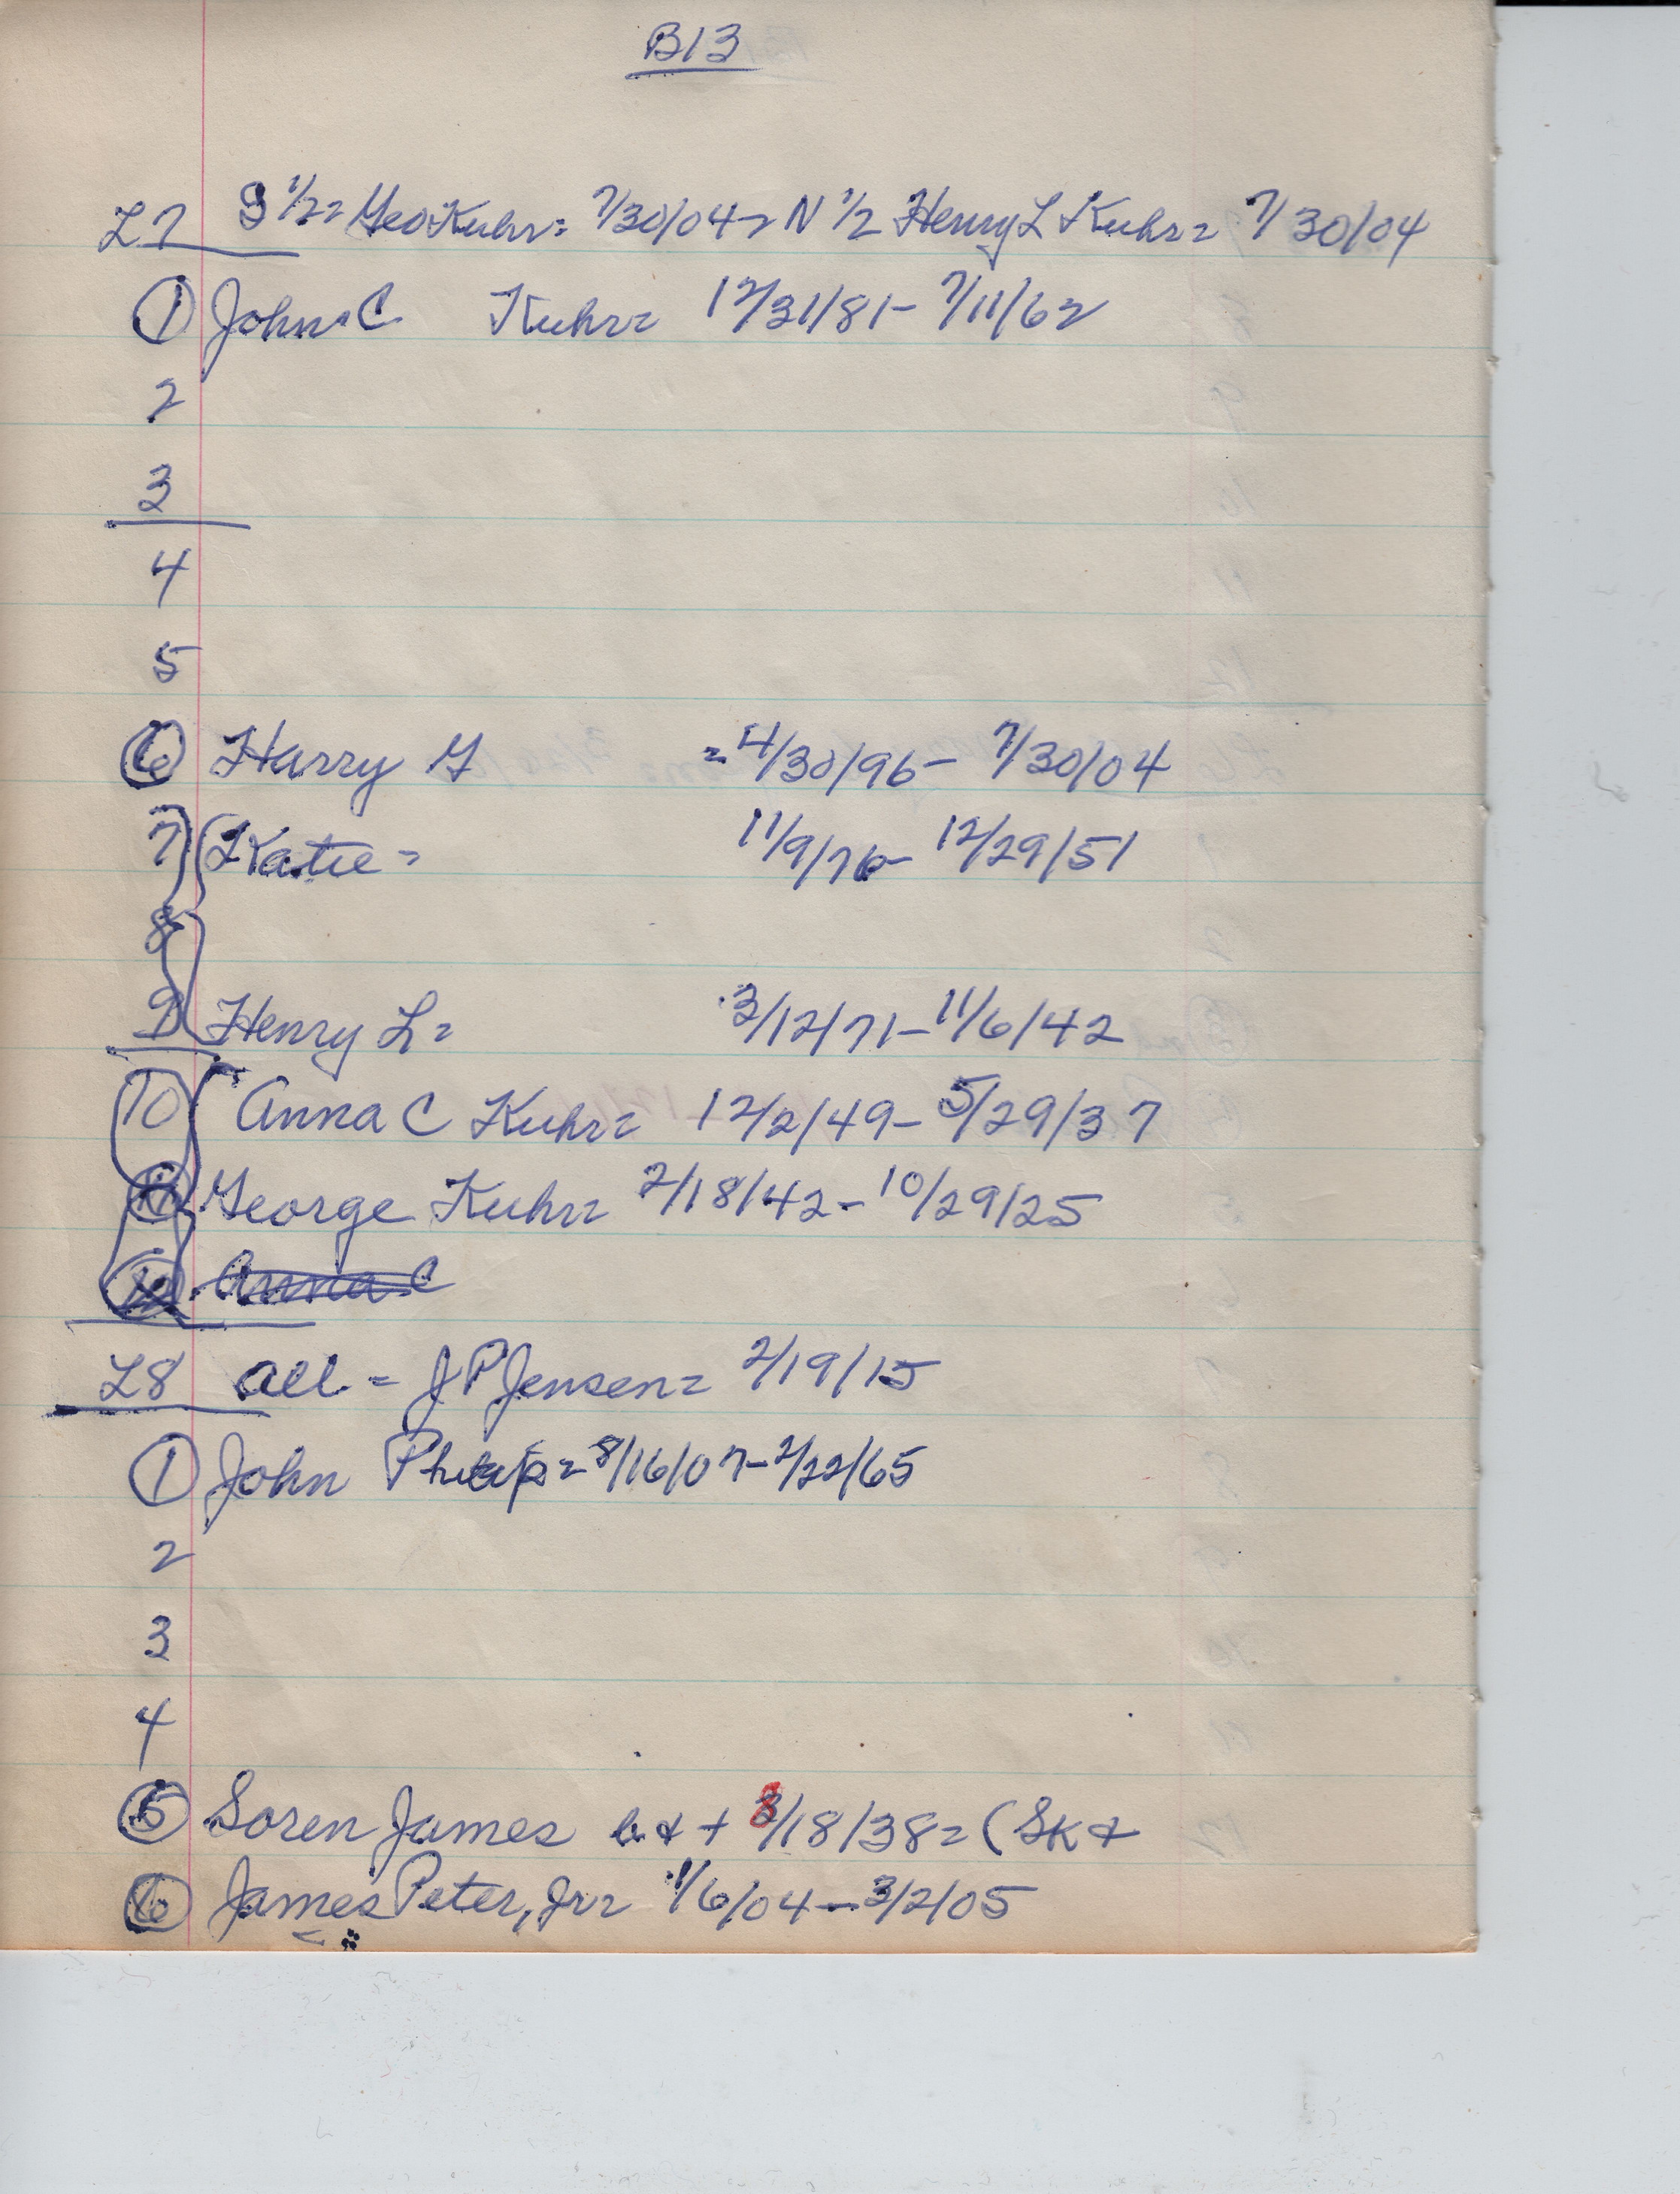 B13
L7 S 1/2= Geo Kuhr= 7/30/04= N 1/2 Henry L Kuhr= 7/30/04
1 John C Kuhr= 12/31/81- 7/11/62
2
3
4
5
6 Harry G = 4/30/96- 7/30/04
7 Katie = 11/9/76- 12/29/51
8
9 Henry L= 3/12/71- 11/6/42
10 Anna C Kuhr= 12/2/49- 5/29/37
11 George Kuhr= 2/18/42- 10/29/25
12 Anna C
L8 all = J P Jensen= 2/19/15
1 John Philip= 8/16/07- 2/22/65
2
3
4
5 Soren James b & + 8/18/38= (SK &
6 James Peter, Jr= 1/6/04- 3/2/05